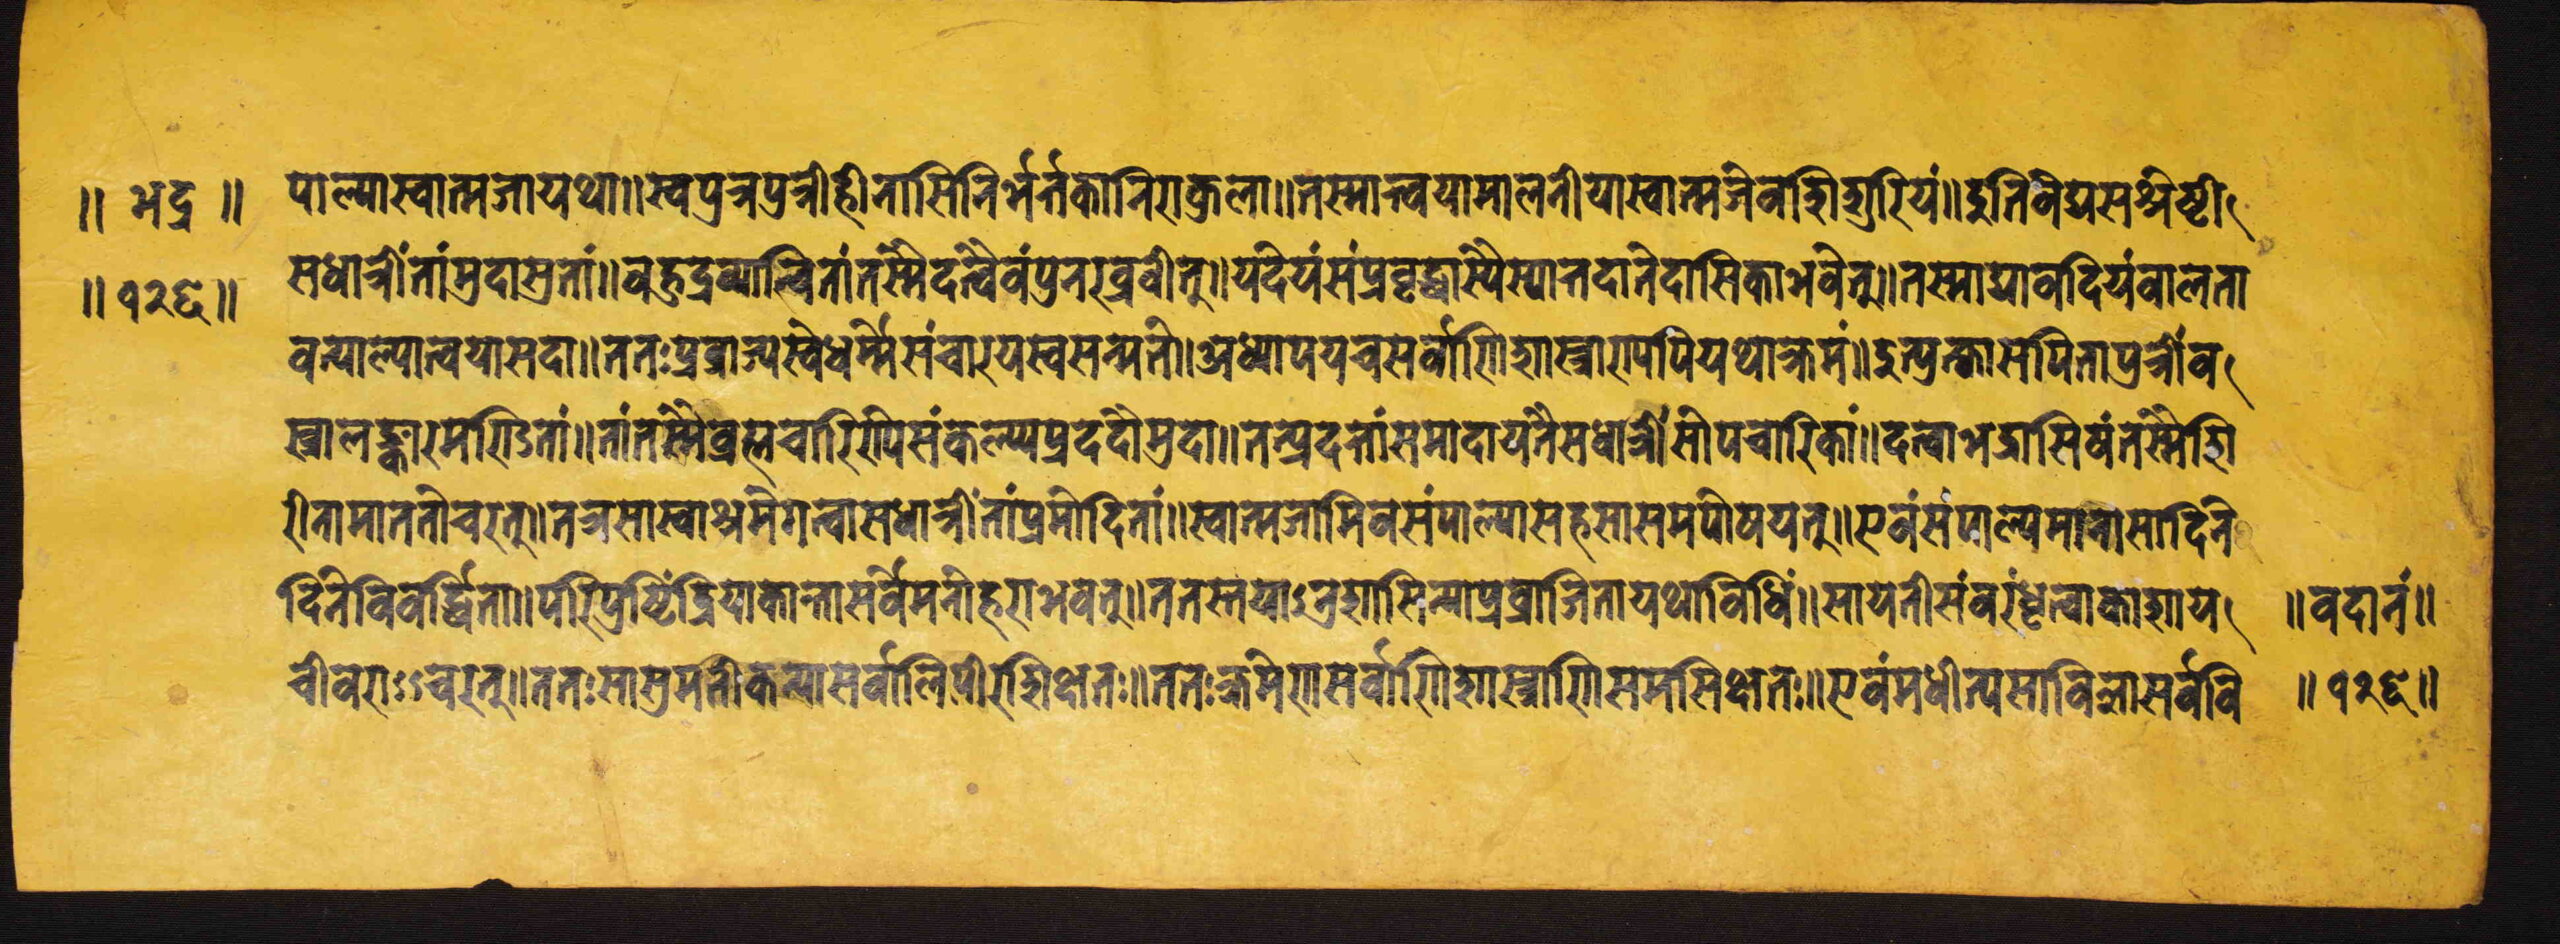 ॥ भद्र ॥
॥ १२६ ॥
पाल्यास्वात्मजायथा॥स्वपुत्रपुत्रीहीनासिनिर्भर्तृकानिराकुला॥तस्मात्त्वयापालनीयास्वात्मजेवशिशुरियं॥इतिविद्यसश्रेष्ठी
सधात्रीं तां मुदासुतां॥बहुद्रव्यान्वितां तस्मै दत्वैवं पुनरब्रवीत्॥यदेयं संप्रवृद्धास्यै स्यात्तदाते दासिकाभवेत्॥तस्माद्यावदियं बालता
वत्पाल्यात्वयासदा॥ततःप्रव्राज्यस्वेधर्म्मेसंचारयस्वसन्मते॥अध्यापयचसर्वाणिशास्त्राण्यपियथाक्रमं॥इत्युक्त्वासपितापुत्रींव
स्त्रालङ्कारमण्डितां॥तां तस्मै ब्रह्मचारिण्यै संकल्प्यप्रददौ मुदा॥तत्प्रदत्तां समादाय तै सधात्रीं सोपचारिकां॥दत्वाभद्रासिषं तस्मै शि
रीनामाततोचरत्॥तत्रसास्वाश्रमेगत्वासधात्रीं तां प्रमोदितां॥स्वात्मजामिवसंपाल्यासहसासमपोषयत्॥एवं संपाल्यमानासादिने
दिनेविवर्द्धिता॥परिपुष्टेंद्रियाकान्तासर्वमनोहराभवत्॥ततस्तयाऽनुशासित्वाप्रव्राजितायथाविधिं॥सायतीसंवरंधृत्वाकाशाय
॥वदानं॥
चीवराऽऽचरत्॥ततःसासुमतीकन्यासर्वालिपीरशिक्षतः॥ततःक्रमेणसर्वाणिशास्त्राणिसमसिक्षतः॥एवमधीत्यसाविज्ञासर्ववि
॥१२६॥